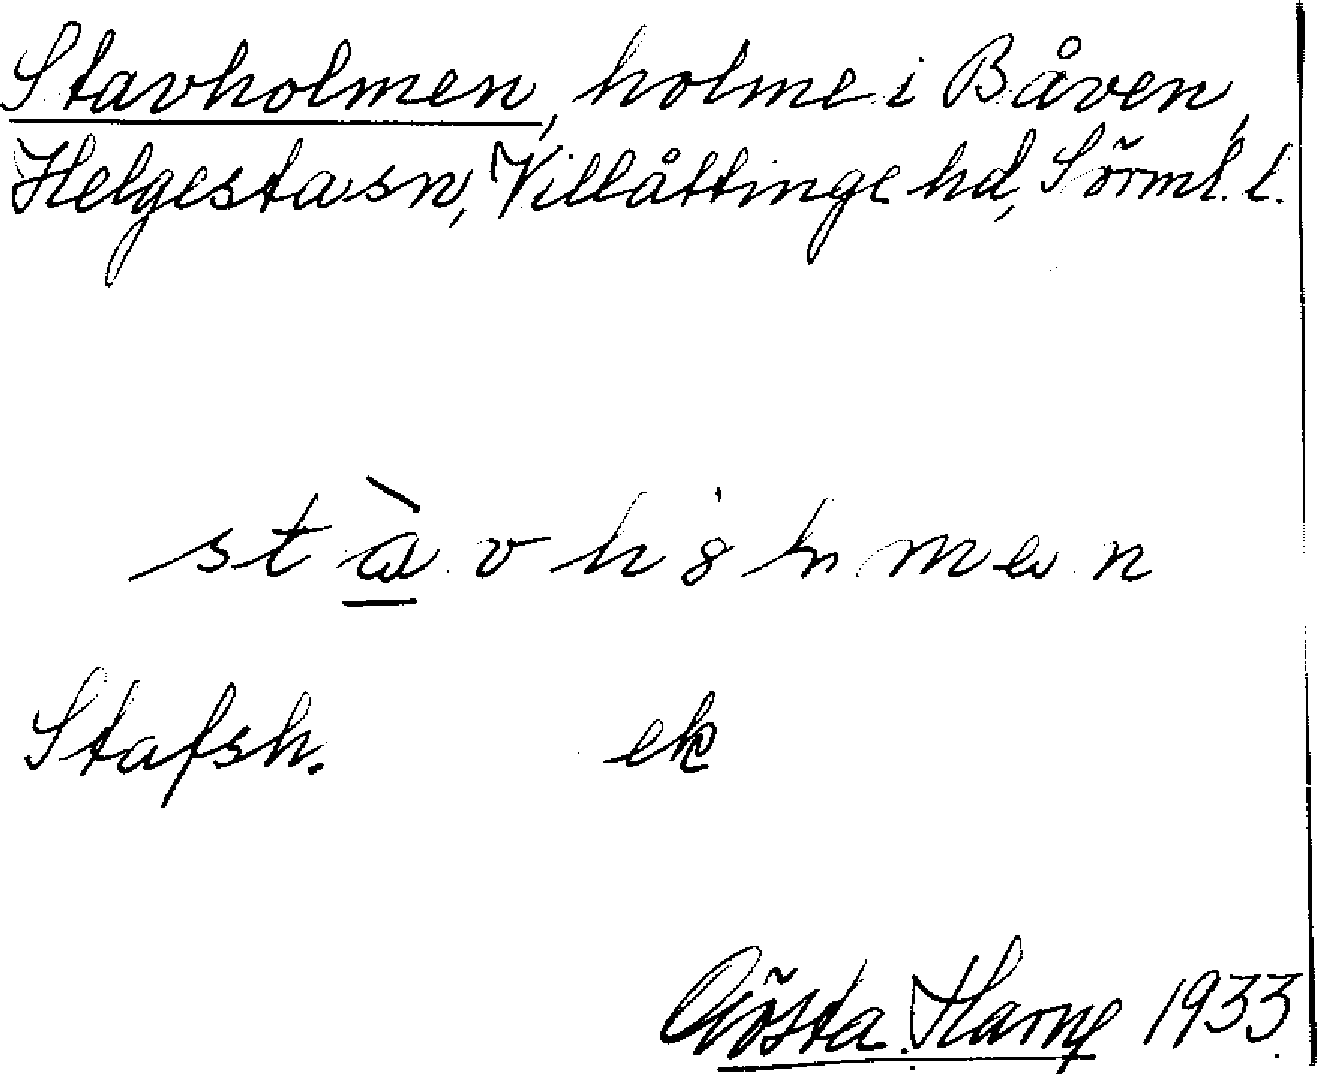 Stavholmen, holme i Båven,
Helgesta sn, Villåttinge hd, Sörml. l.
Stafsh. ek
Gösta Harng 1933